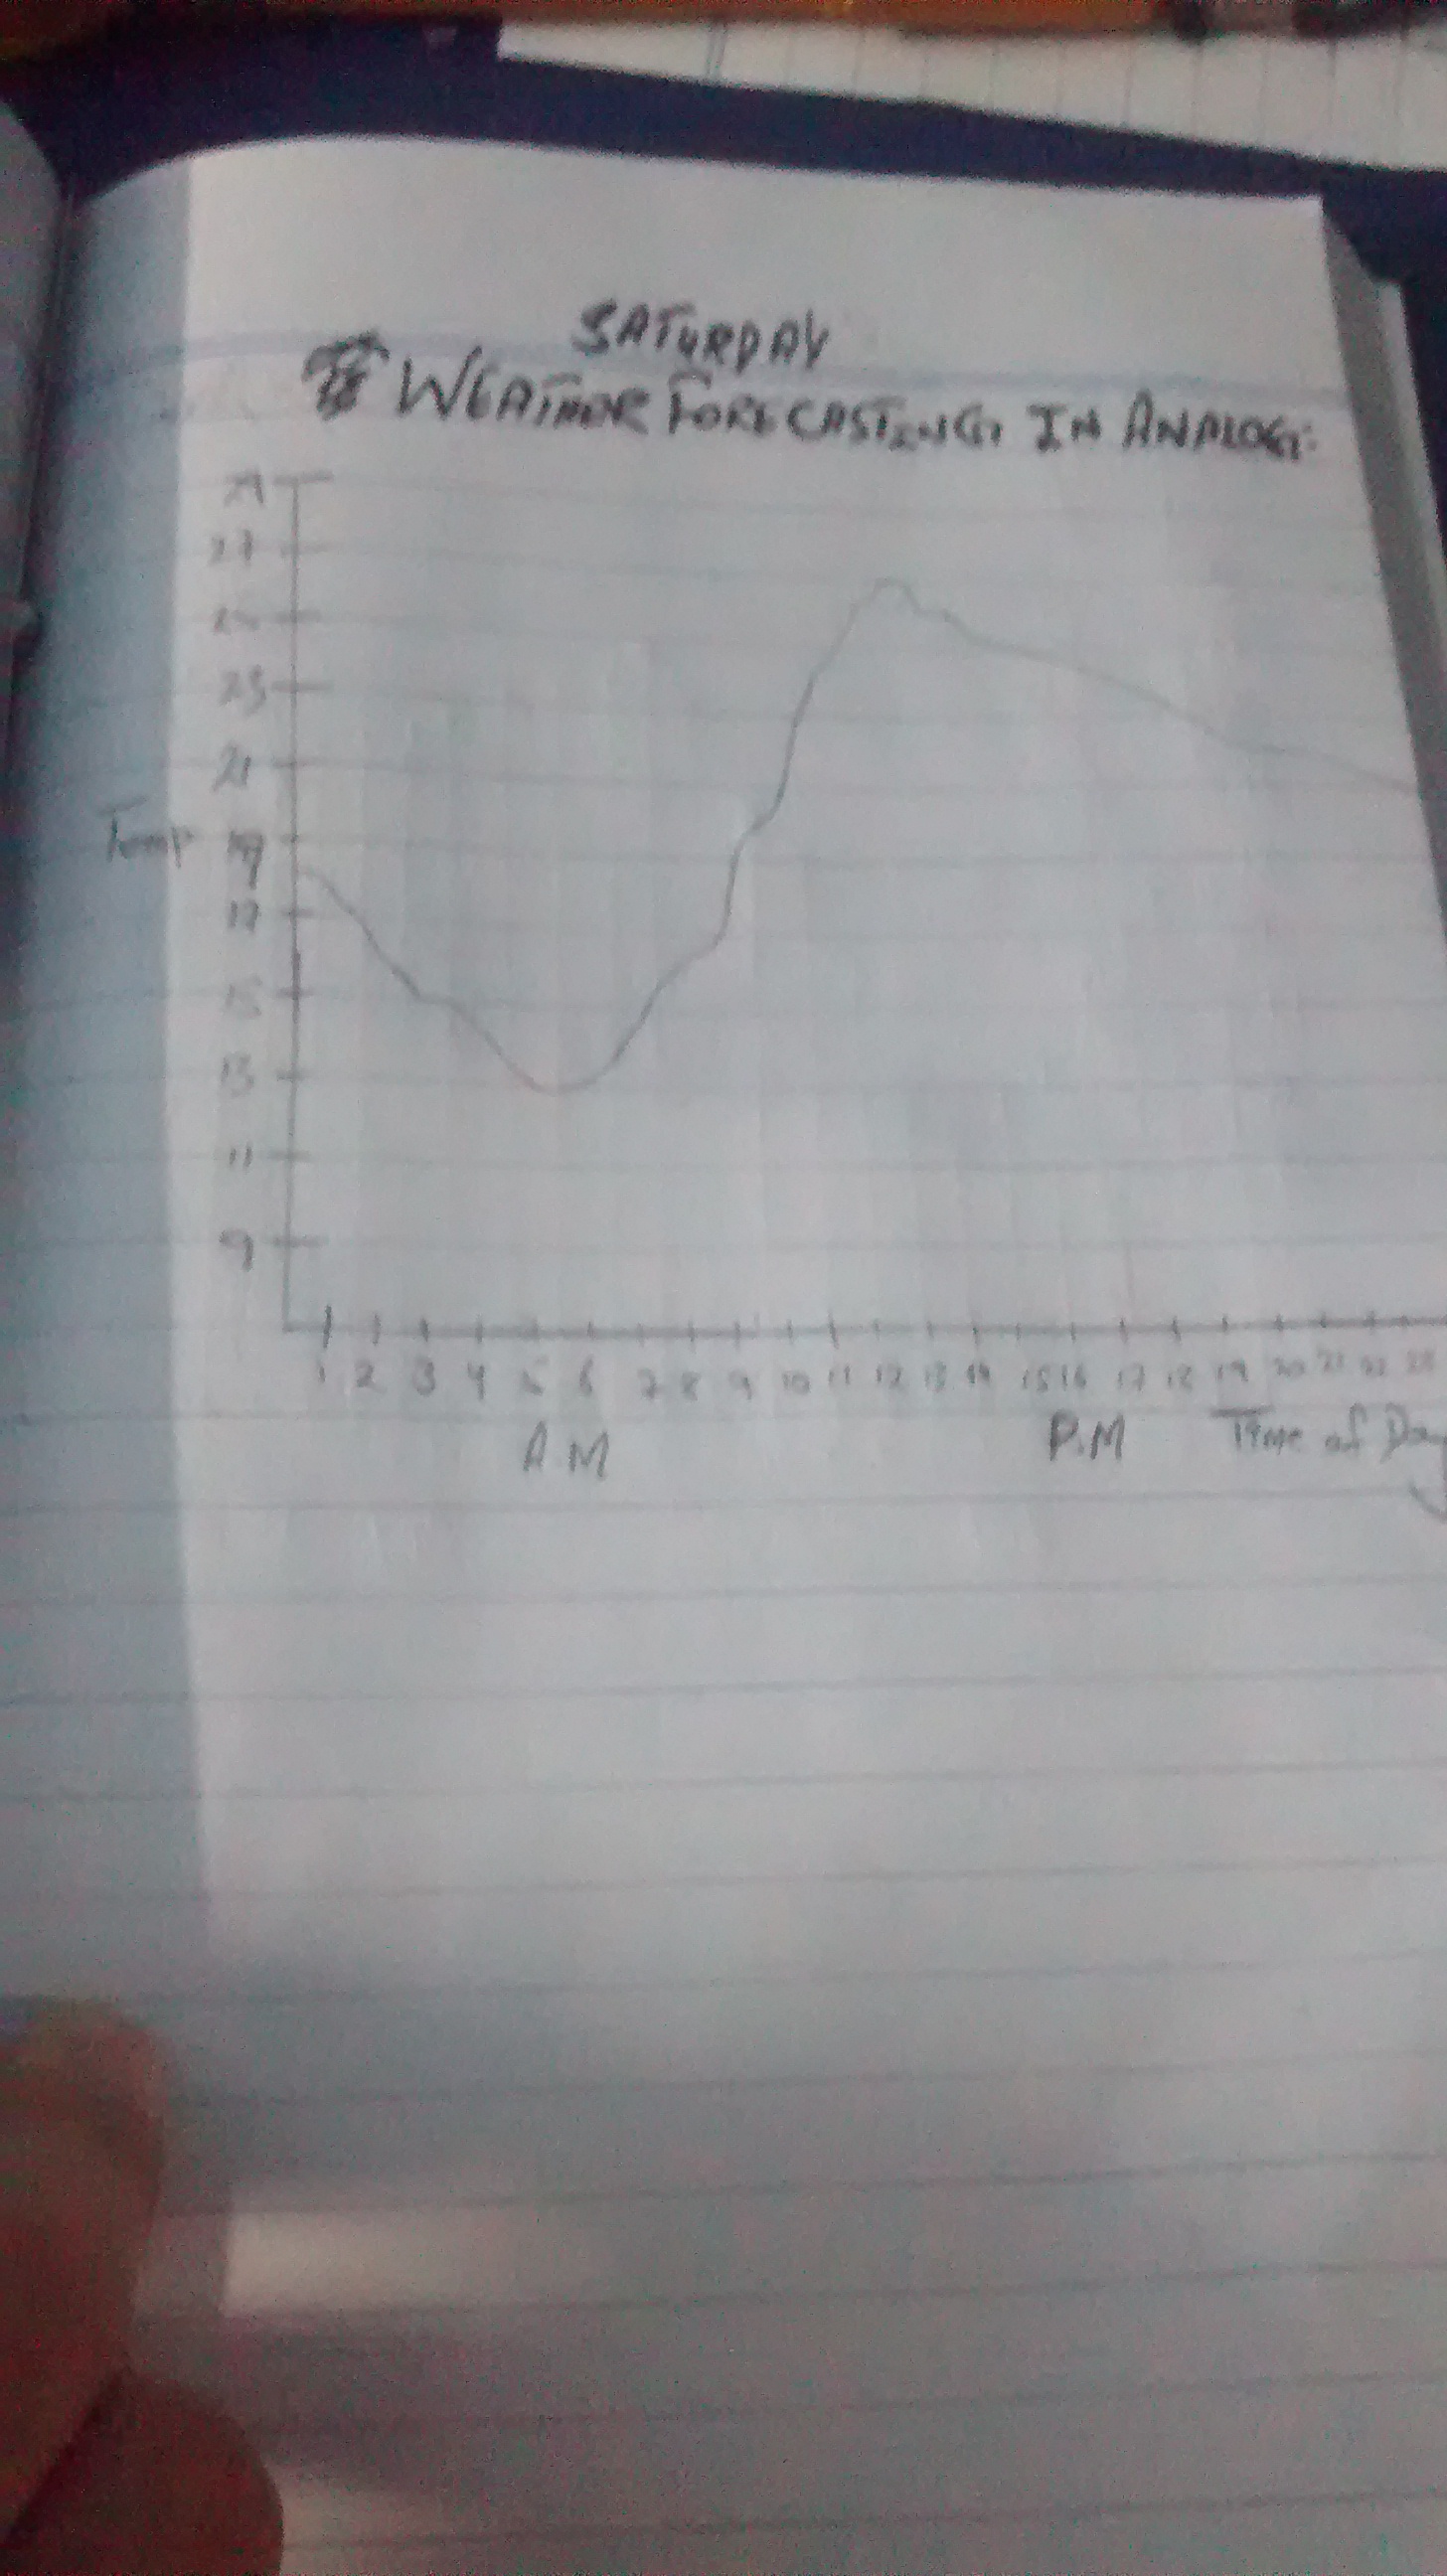 SATURDAY
WEATHER FORECASTING IN ANALOG:
29
27
25
23
21
Temp 19
17
15
13
11
9
1 2 3 4 5 6 7 8 9 10 11 12 13 14 15 16 17 18 19 20 21 22 23
A.M P.M Time of Day